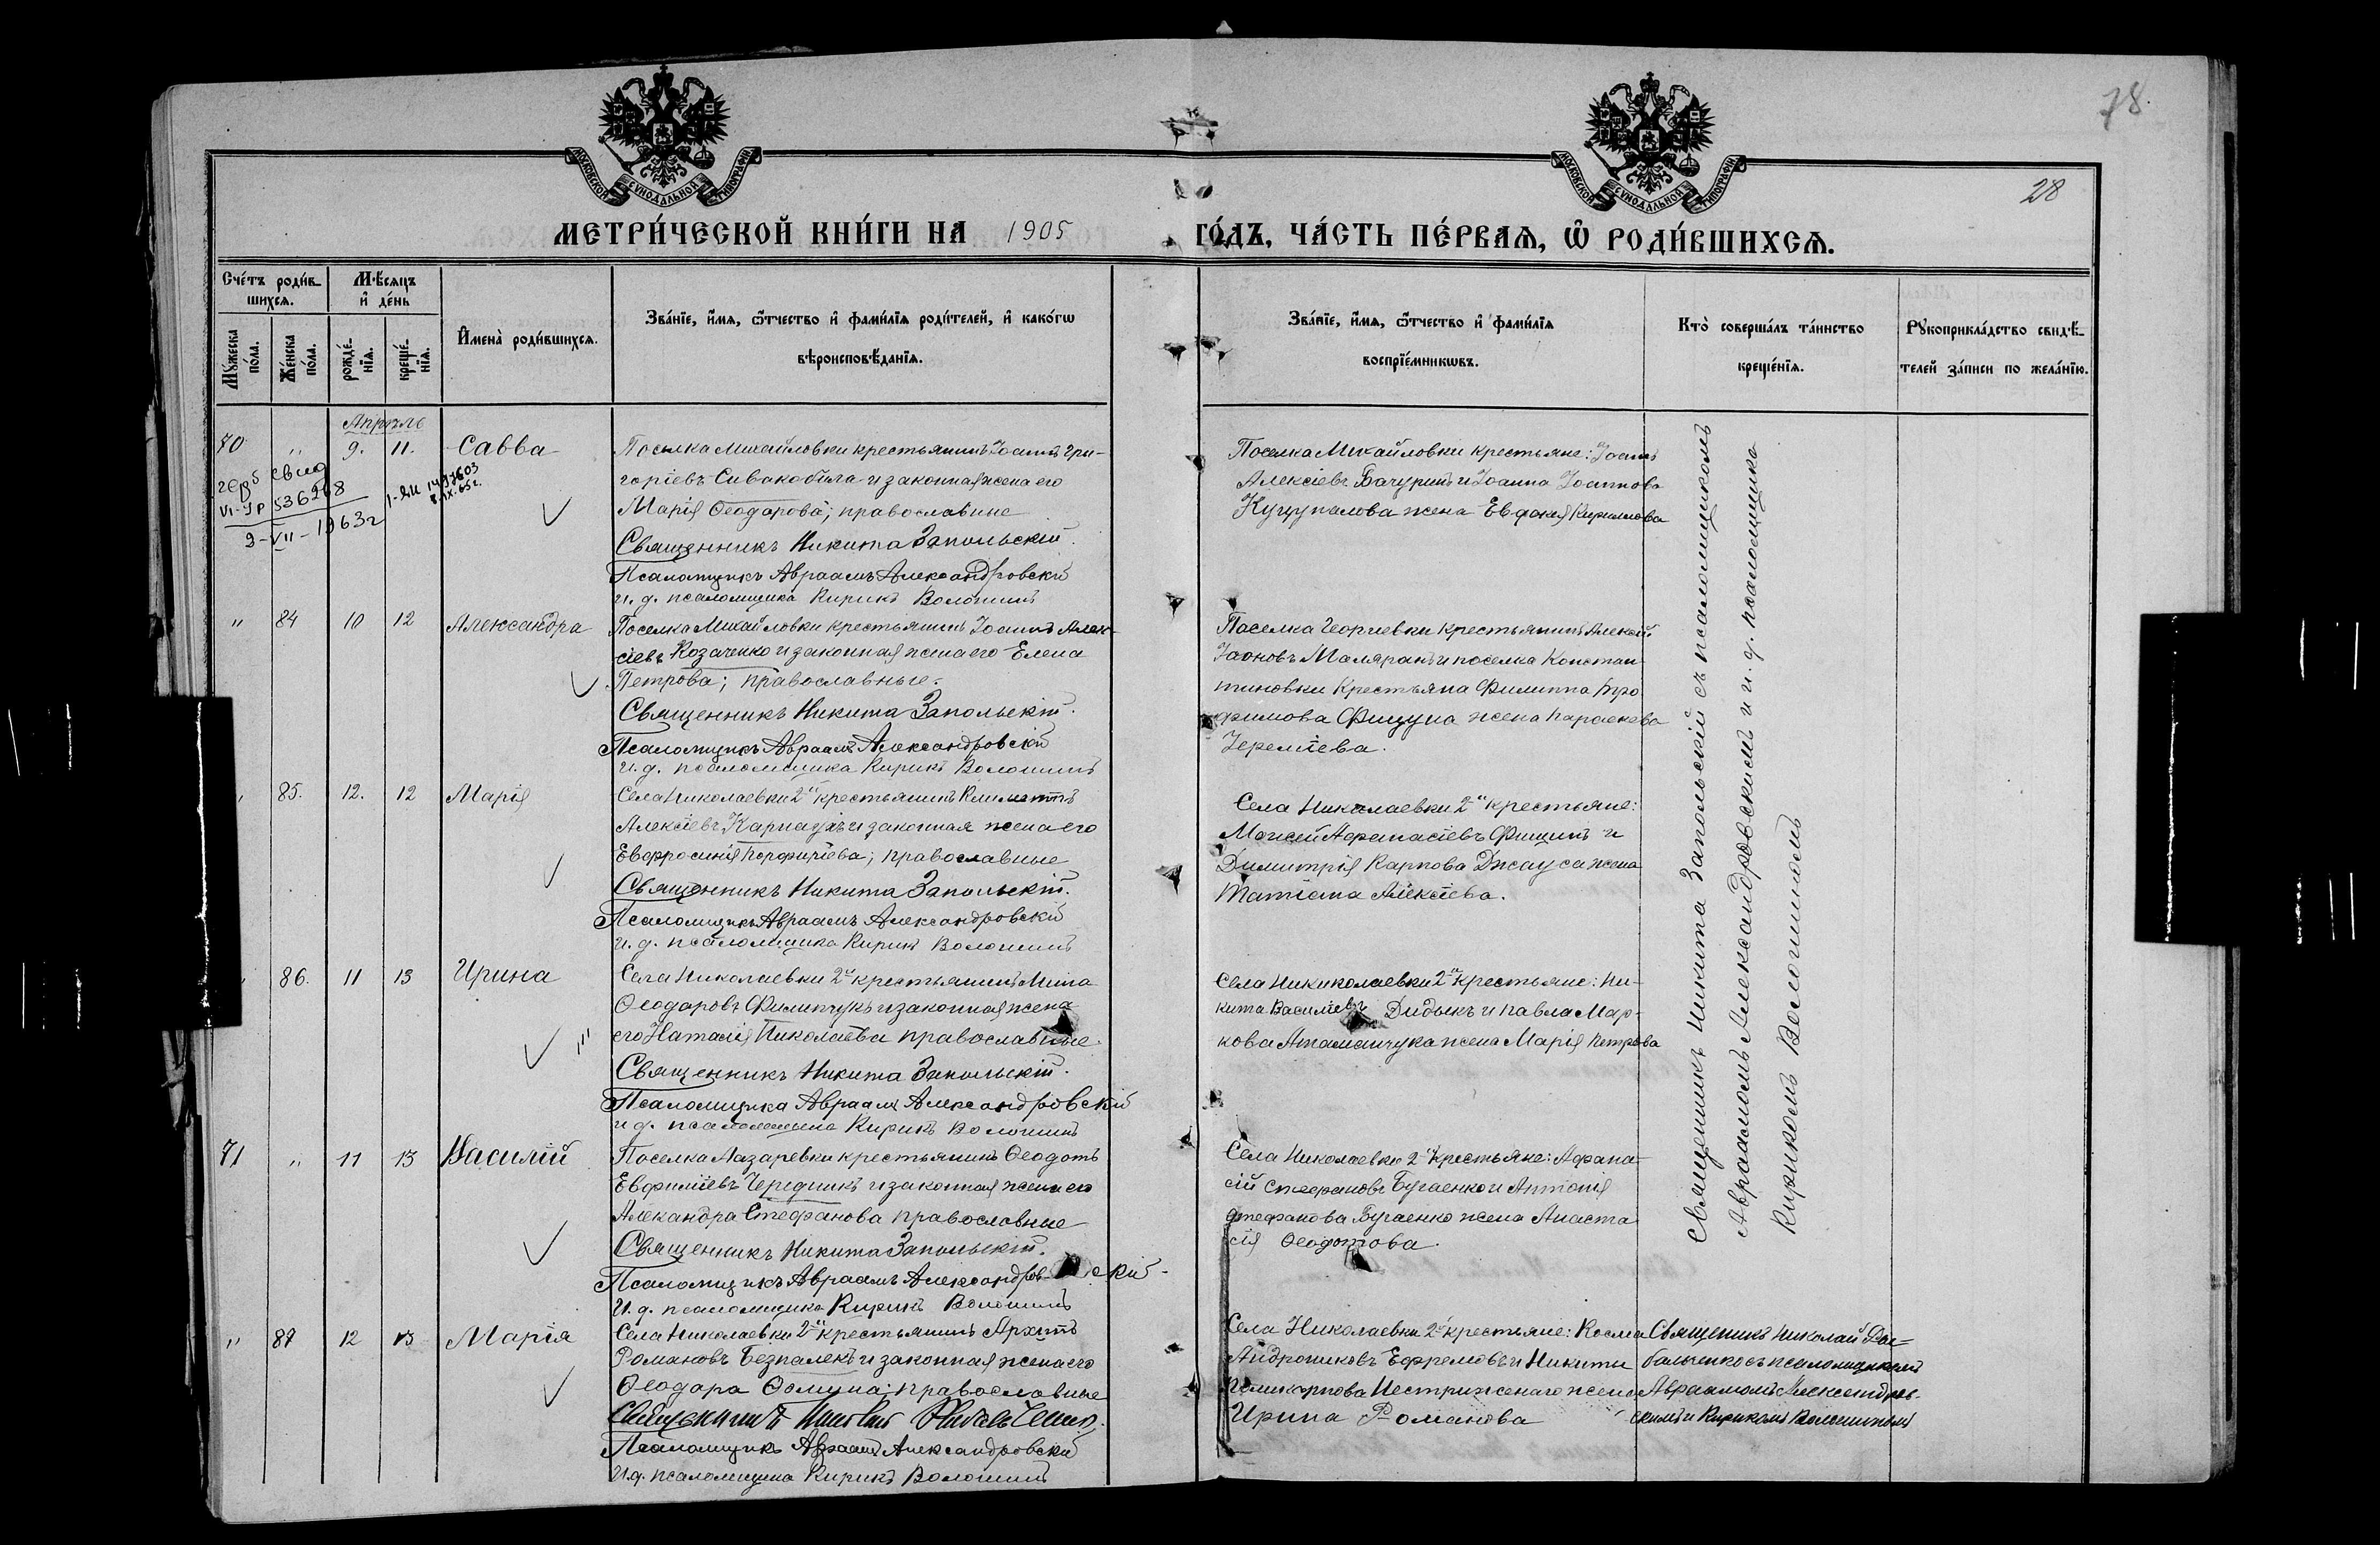 78
28
МОСКОВСКОЙ СѴНОДАЛЬНОЙ ТИПОГРАФІИ
МОСКОВСКОЙ СѴНОДАЛЬНОЙ ТИПОГРАФІИ
МЕТРИ́ЧЕСКОЙ КНИ́ГИ НА 1905 ГО́ДЪ, ЧА́СТЬ ПЕ́РВАѦ, Ѡ҆ РОДИ́ВШИХСѦ.
Сче́тъ роди́в-
шихсѧ.
Мѣ́сѧцъ
и҆ де́нь
Мꙋ́жеска
по́ла.
Же́нска
по́ла.
рожде́-
нїѧ.
креще́-
нїѧ.
И҆мена̀ роди́вшихсѧ.
Зва́нїе, и҆́мѧ, ѻ҆́тчество и҆ фами́лїѧ роди́телей, и҆ како́гѡ
вѣроисповѣ́данїѧ.
Зва́нїе, и҆́мѧ, ѻ҆́тчество и҆ фами́лїѧ
воспрїе́мникѡвъ.
Кто̀ соверша́лъ та́инство
креще́нїѧ.
Рꙋкоприкла́дство свидѣ́-
телей за́писи по жела́нїю.
Апрѣль
70 " 9. 11. Савва
свид
VI-УР 536268
9-VII-1963г
Поселка Михайловки крестьянинъ Іоаннъ Гри-
горіевъ Сивакобыла и законная жена его
Марія Ѳеодорова; православные
Священникъ Никита Запольскій.
Псаломщикъ Авраамъ Александровскій
и. д. псаломщика Кирикъ Волошинъ
Поселка Михайловки крестьяне: Іоаннъ
Алексіевъ Бачуринъ и Іоанна Іоаннова
жена Евдокія Кириллова
" 84 10 12 Александра
Поселка Михайловки крестьянинъ Іоаннъ Алек-
сіевъ Козаченко и законная жена его Елена
Петрова; православные.
Священникъ Никита Запольскій.
Псаломщикъ Авраамъ Александровскій
и. д. псаломщика Кирикъ Волошинъ
Поселка Георгиевки крестьянинъ Алексій
и поселка Констан-
тиновки крестьяна Филиппа Тро
фимова Фищуна жена Параскева
Іереміева.
" 85. 12. 12 Марія
Села Николаевки 2й крестьянинъ Климентъ
Алексіевъ Карнаухъ и законная жена его
Евфросинія Порфиріева; православные
Священникъ Никита Запольскій.
Псаломщикъ Авраамъ Александровскій
и. д. псаломщика Кирикъ Волошинъ
Села Николаевки 2й крестьяне:
Моисей Афанасіевъ Фищинъ и
Димитрія Карпова Джауса жена
Татіана Алексіева.
" 86. 11 13 Ирина
Села Николаевки 2й крестьянинъ Мина
Ѳеодоровъ Филипчукъ и законная жена
его Наталія Николаева православные.
Священникъ Никита Запольскій.
Псаломщика Авраамъ Александровскій
и д. псаломщика Кирикъ Волошинъ
Села Никиколаевки 2й крестьяне: Ни-
кита Василіевъ Дидыкъ и Павла Мар-
кова Атаманчука жена Марія Петрова
71 " 11 13 Василій
Поселка Лазаревки крестьянинъ Ѳеодотъ
Евфиміевъ Чередникъ и законная жена его
Алекандра Стефанова православные
Священникъ Никита Запольскій.
Псаломщикъ Авраамъ Александровскій
И. д. псаломщика Кирикъ Волошинъ
Села Николаевки 2й крестьяне: Афана-
сій Стефановъ Бугаенко и Антонія
Стефанова Бугаенко жена Анаста
сія Ѳеодотова.
" 87 12 13 Марія
Села Николаевки 2й крестьянинъ Архипъ
Романовъ Безпалекъ и законная жена его
Ѳеодора Ѳомина; православные
Священникъ Николай
Псаломщикъ Авраамъ Александровскій
И.д. псаломщика Кирикъ Волошинъ
Села Николаевки 2й крестьяне: Косма
Андрониковъ Ефремовъ и Никиты
Поликарпова Нестриженаго жена
Ирина Романова
Священникъ Никита Запольскій съ псаломщикомъ
Авраамомъ Александровскимъ и и. д. псаломщика
Кирикомъ Волошиномъ
Священикъ Николай
съ псаломщикомъ
Авраамомъ Александров-
скимъ и Кирикомъ Волошиномъ